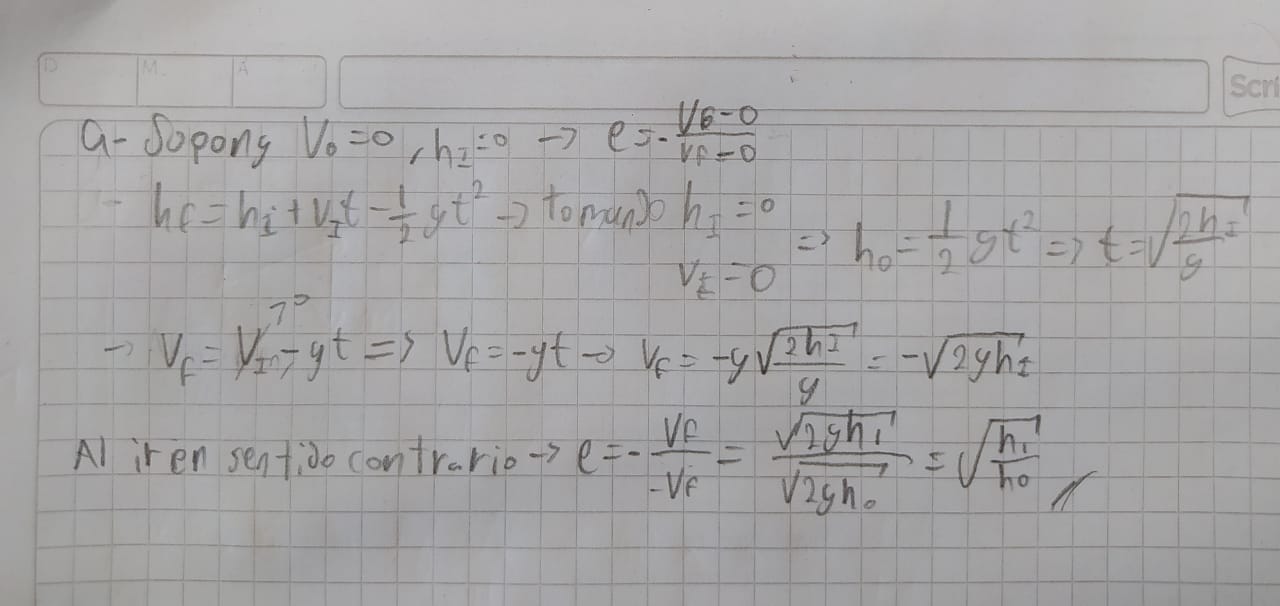 D M. A
Scri
a- Sopong V₀=0, h_I=0 → e=-\frac{V6-0}{Vf-0}
- hf=h_i+V_It-\frac{1}{2}gt² → tomando h_I=0
V_I=0
⇒ h₀=\frac{1}{2}gt² ⇒ t=\sqrt{\frac{2h_I}{g}}
→ V_f=V_I-gt ⇒ V_f=-gt → V_f=-g\sqrt{\frac{2h_I}{g}}=-\sqrt{2gh_I}
Al ir en sentido contrario → e=-\frac{Vf}{-Vf}=\frac{\sqrt{2gh_1}}{\sqrt{2gh_0}}=\sqrt{\frac{h_1}{h_0}}